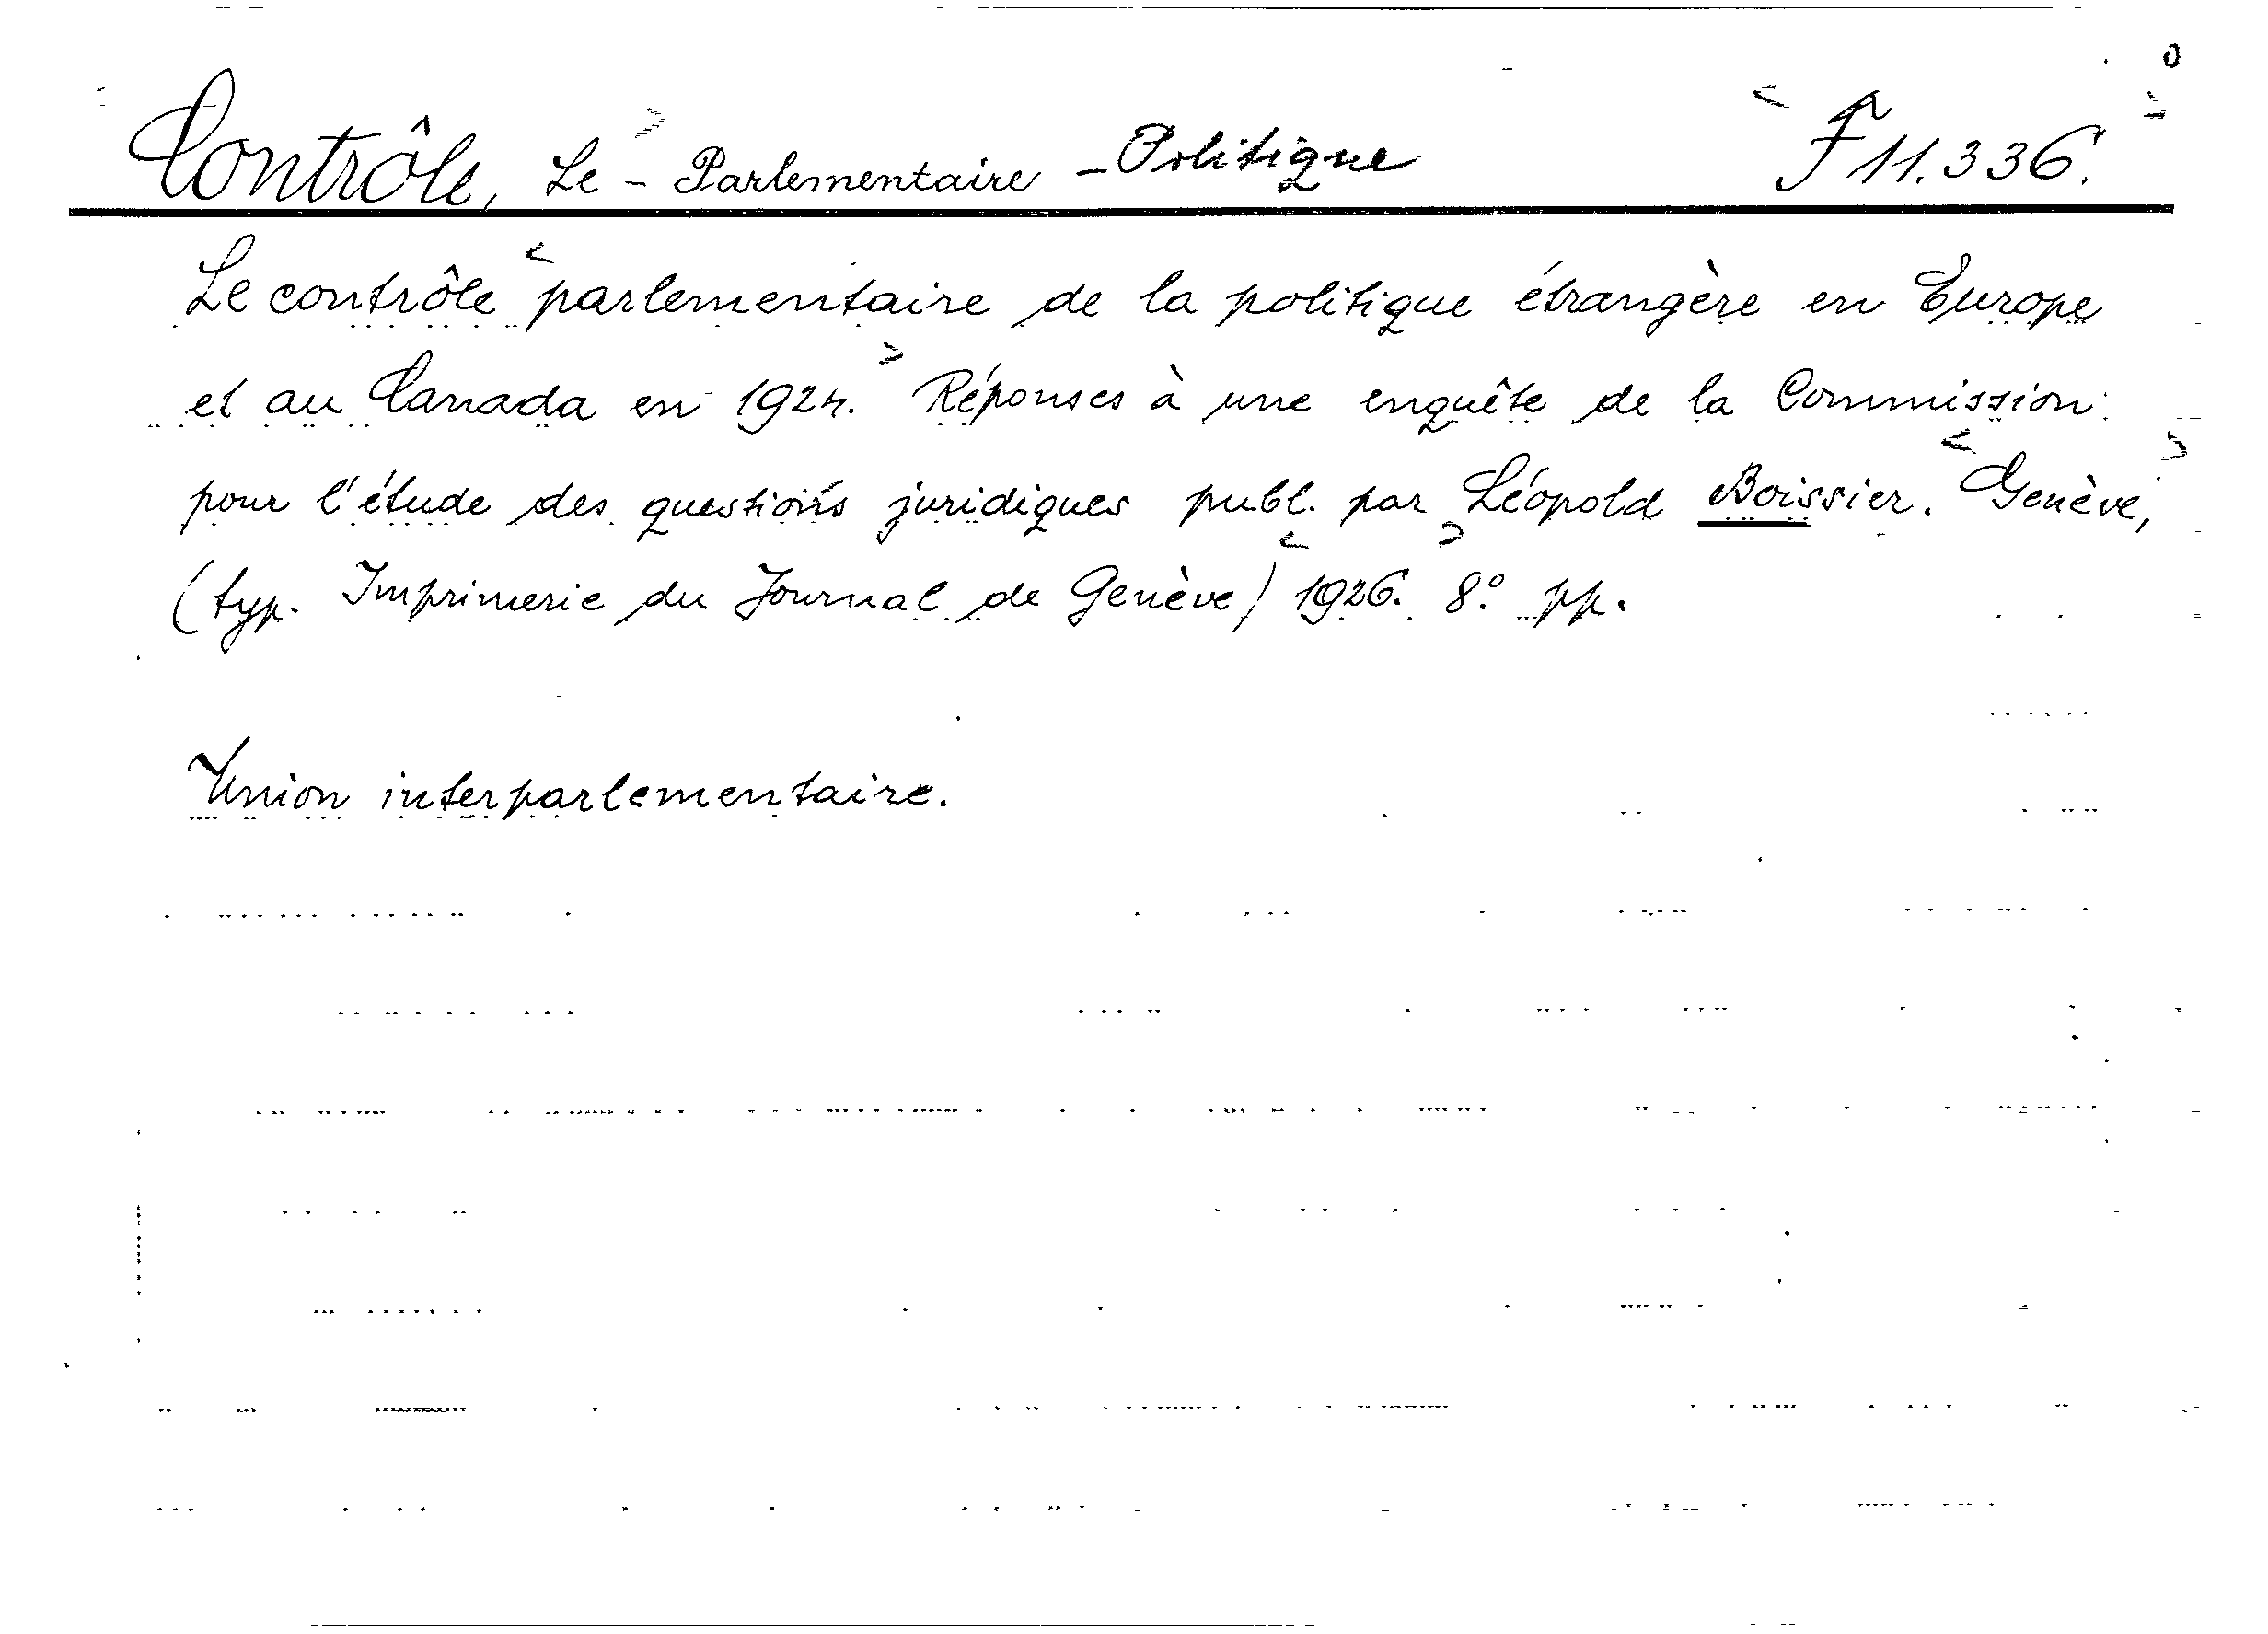 Contrôle, Le - Parlementaire - Politique F 11.336.
Le contrôle parlementaire de la politique étrangère en Europe
et au Canada en 1924. Réponses à une enquête de la Commission
pour l'étude des questions juridiques publ. par Léopold Boissier. Genève,
(typ. Imprimerie du Journal de Genève) 1926. 8.° pp.
Union interparlementaire.